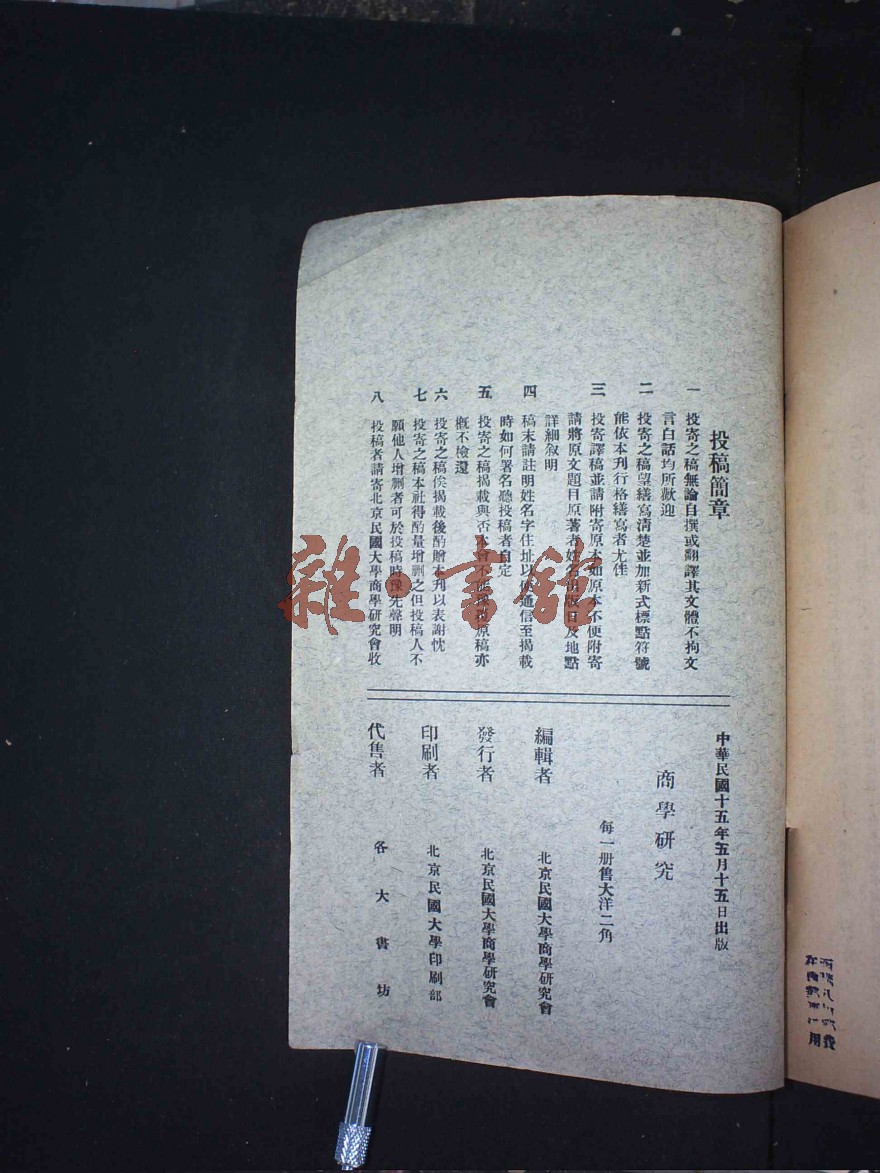 投稿簡章
一 投寄之稿無論自撰或翻譯其文體不拘文
言白話均所歡迎
二 投寄之稿望繕寫清楚並加新式標點符號
能依本刊行格繕寫者尤佳
三 投寄譯稿並請附寄原本如原本不便附寄
請將原文題目原著者姓名出版日及地點
詳細叙明
四 稿末請註明姓名字住址以便通信至揭載
時如何署名聽投稿者自定
五 投寄之稿揭載與否本會不能豫覆原稿亦
槪不檢還
六 投寄之稿俟揭載後酌贈本刊以表謝忱
七 投寄之稿本社得酌量增刪之但投稿人不
願他人增刪者可於投稿時豫先聲明
八 投稿者請寄北京民國大學商學研究會收
中華民國十五年五月十五日出版
商學研究
每一册售大洋二角
編輯者 北京民國大學商學研究會
發行者 北京民國大學商學研究會
印刷者 北京民國大學印刷部
代售者 各大書坊
雜·書館